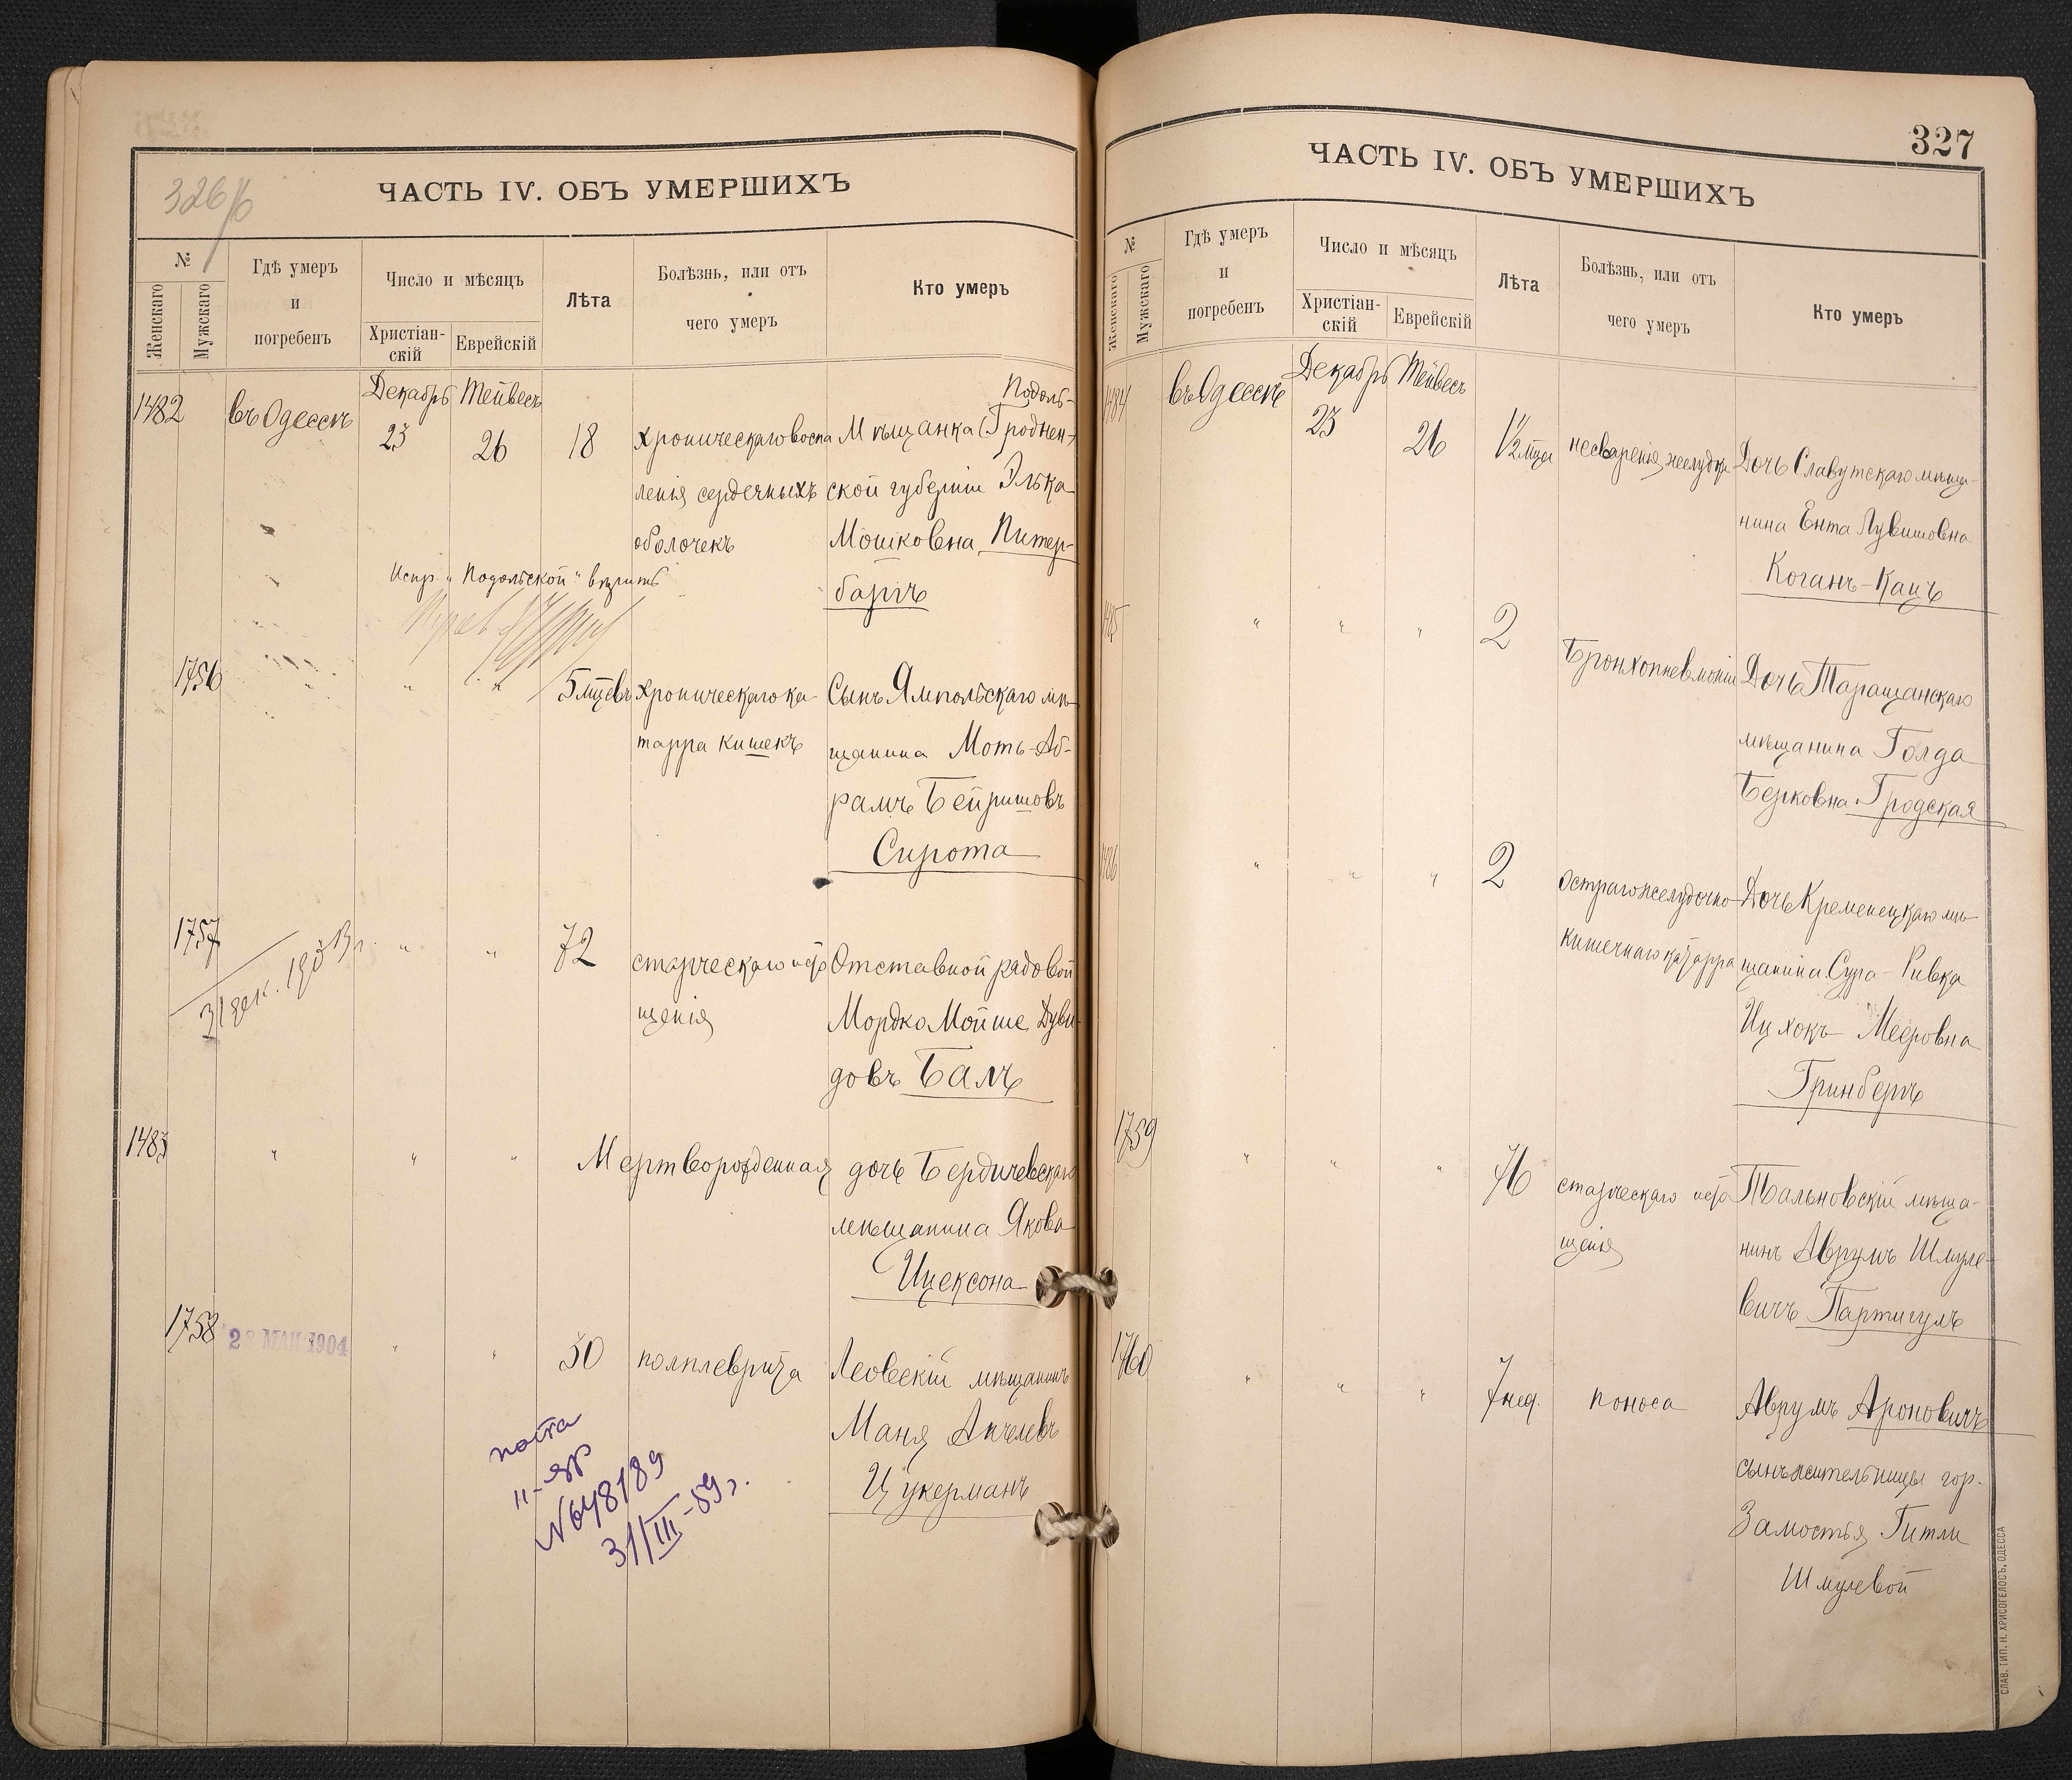 326/б
ЧАСТЬ IV. ОБЪ УМЕРШИХЪ
№
Женскаго
Мужскаго
Гдѣ умеръ
и
погребенъ
Число и мѣсяцъ
Христіан-
скій
Еврейскій
Лѣта
Болѣзнь, или отъ
чего умеръ
Кто умеръ
1482
въ Одессѣ
Декабрь
23
Тейвесъ
26
18
хроническаго воспа
ленія сердечныхъ
оболочекъ
Подоль-
Мѣщанка (Гроднен-)
ской губерніи Элька
Мошковна Питер-
баргъ
Испр. "Подольской" вѣрить
1756
" "
5 мѣцевъ
хроническаго ка-
тарра кишекъ
Сынъ Ямпольскаго мѣ-
щанина Моть-Аб-
рамъ Бейришовъ
Сирота
1757
31 дек. 1903 г.
" "
72
старческаго исто
щенія
Отставной рядовой
Мордко Мойше Дуви-
довъ Балъ
1483
" " "
Мертворожденная дочь Бердичевскаго
мѣщанина Якова
Ицексона
1758
28 МАЙ 1904
" "
50
полплеврита
Леовскій мѣщанинъ
Маня Анчелевъ
Цукерманъ
II-ЯР
№648189
31/III-59 г.
327
ЧАСТЬ IV. ОБЪ УМЕРШИХЪ
№
Женскаго
Мужскаго
Гдѣ умеръ
и
погребенъ
Число и мѣсяцъ
Христіан-
скій
Еврейскій
Лѣта
Болѣзнь, или отъ
чего умеръ
Кто умеръ
1484
въ Одессѣ
Декабрь
23
Тейвесъ
26
1½ мѣца
несваренія желудка
Дочь Славутскаго мѣща-
нина Ента Лувишовна
Коганъ-Кацъ
1485
" " "
2
Бронхопневмоніи
Дочь Таращанскаго
мѣщанина Голда
Берковна Гродская
1486
" " "
2
Остраго желудочно-
кишечнаго катарра
Дочь Кременецкаго мѣ-
щанина Сура-Ривка
Ицхокъ Мееровна
Гринбергъ
1759
" " "
76
старческаго исто
щенія
Тальновскій мѣща-
нинъ Аврумъ Шмуле-
вичъ Партигулъ
1760
" " "
7 нед.
поноса
Аврумъ Ароновичъ
сынъ жительницы гор.
Замостья Гитли
Шмулевой
СЛАВ. ТИП. Н. ХРИСОГЕЛОСЪ, ОДЕССА